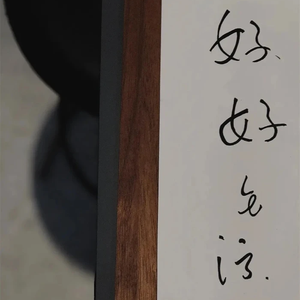 好好生活.